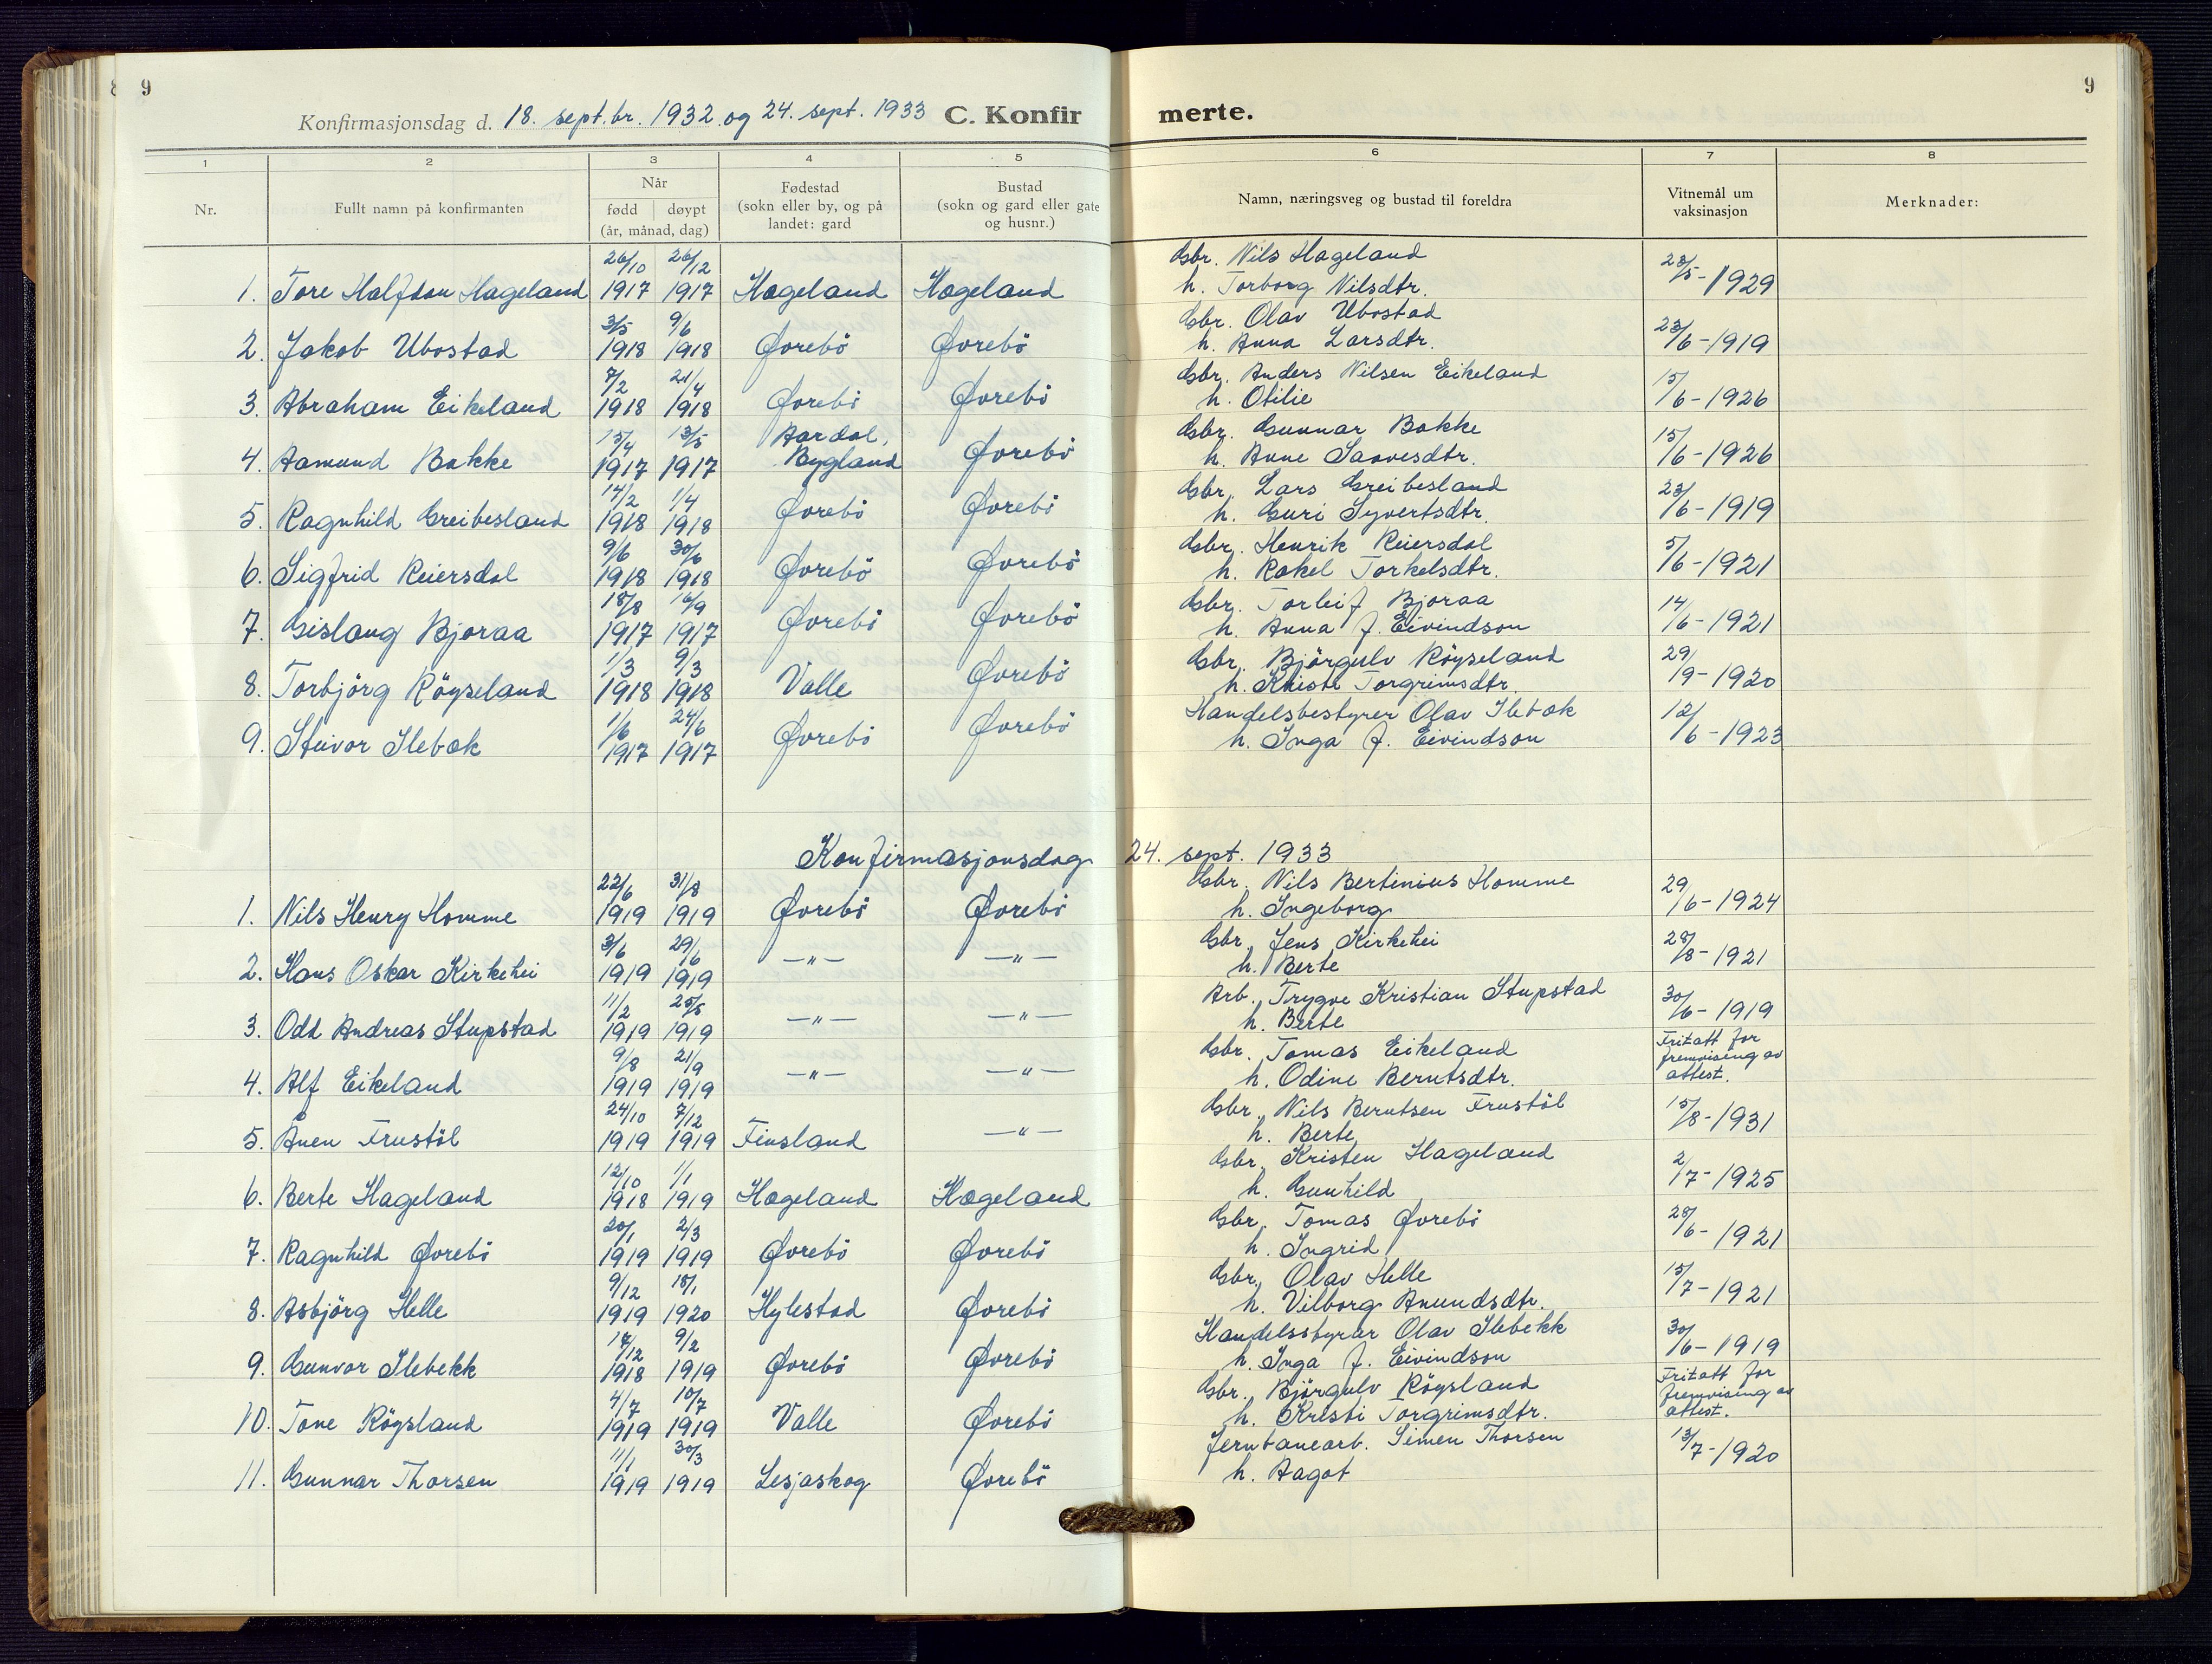 9
9
Konfirmasjonsdag d. 18. sept.br. 1932 og 24. sept. 1933 C. Konfir merte.
1 2 3 4 5 6 7 8
Nr.
Fullt namn på konfirmanten
Når
fødd døypt
(år, månad, dag)
Fødestad
(sokn eller by, og på
landet: gard
Bustad
(sokn og gard eller gate
og husnr.)
Namn, næringsveg og bustad til foreldra
Vitnemål um
vaksinasjon
Merknader:
26/10 26/12 Gbr. Nils Hageland
1. Tore Halfdan Hageland 1917 1917 Hægeland Hægeland h. Torborg Nilsdtr. 23/5-1929
3/5 9/6 Gbr. Olav Ubostad
2. Jakob Ubostad 1918 1918 Øvrebö Øvrebö h. Anna Larsdtr. 23/6-1919
7/2 21/4 Gbr. Anders Nilsen Eikeland
3. Abraham Eikeland 1918 1918 Øvrebö Øvrebö h. Otilie 15/6-1926
15/4 13/5 Aardal, Gbr. Gunnar Bakke
4. Aamund Bakke 1917 1917 Bygland Øvrebö h. Anne Saavesdtr. 15/6-1926
14/2 1/4 Gbr. Lars Greibesland
5. Ragnhild Greibesland 1918 1918 Øvrebö Øvrebö h. Guri Syvertsdtr. 23/6-1919
9/6 30/6 Gbr. Henrik Reiersdal
6. Sigfrid Reiersdal 1918 1918 Øvrebö Øvrebö h. Rakel Torkelsdtr. 5/6-1921
18/8 16/9 Gbr. Torleif Bjoraa
7. Gislaug Bjoraa 1917 1917 Øvrebö Øvrebö h. Anna f. Eivindson 14/6-1921
1/3 9/3 Gbr. Björgulv Röyseland
8. Torbjörg Röyseland 1918 1918 Valle Øvrebö h. Kristi Torgrimsdtr. 29/9-1920
1/6 24/6 Handelsbestyrer Olav Ilebæk
9. Steivor Ilebæk 1917 1917 Øvrebö Øvrebö h. Inga f. Eivindson 12/6-1923
Konfirmasjonsdag 24. sept. 1933
22/6 31/8 Gbr. Nils Bertinius Homme
1. Nils Henry Homme 1919 1919 Øvrebö Øvrebö h. Ingeborg 29/6-1924
3/6 29/6 Gbr. Jens Kirkehei
2. Hans Oskar Kirkehei 1919 1919 —"— —"— h. Berte 28/8-1921
11/2 25/5 Arb. Trygve Kristian Stupstad
3. Odd Andreas Stupstad 1919 1919 —"— —"— h. Berte 30/6-1919
9/8 21/9 Gbr. Tomas Eikeland Fritatt for
fremvising av
4. Alf Eikeland 1919 1919 —"— —"— h. Odine Berntsdtr. attest.
24/10 7/12 Gbr. Nils Berntsen Frustöl
5. Ånen Frustöl 1919 1919 Finsland —"— h. Berte 15/8-1931
12/10 1/1 Gbr. Kristen Hageland
6. Berte Hageland 1918 1919 Hægeland Hægeland h. Gunhild 2/7-1925
20/1 2/3 Gbr. Tomas Øvrebö
7. Ragnhild Øvrebö 1919 1919 Øvrebö Øvrebö h. Ingrid 28/6-1921
9/12 18/1 Gbr. Olav Helle
8. Asbjörg Helle 1919 1920 Hylestad Øvrebö h. Vilborg Anundsdtr. 15/7-1921
17/12 9/2 Handelsstyrar Olav Ilebekk
9. Gunvor Ilebekk 1918 1919 Øvrebö Øvrebö h. Inga f. Eivindson 30/6-1919
4/7 10/7 Gbr. Björgulv Röysland Fritatt for
fremvising av
10. Tone Röysland 1919 1919 Valle Øvrebö h. Kristi Torgrimsdtr. attest.
11/1 30/3 Jernbanearb. Simen Thorsen
11. Gunnar Thorsen 1919 1919 Lesjaskog Øvrebö h. Aagot 13/7-1920